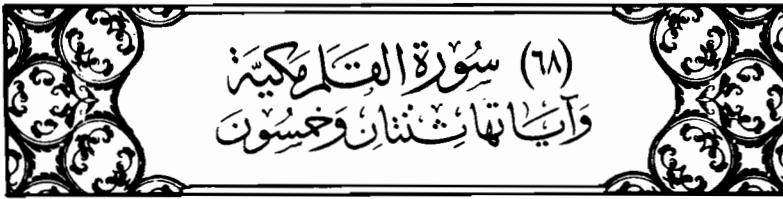 (٦٨) سُورَةُ القَلَمِ مَكِيَّة
وَآيَاتُهَا ثِنْتَانِ وَخَمْسُونَ